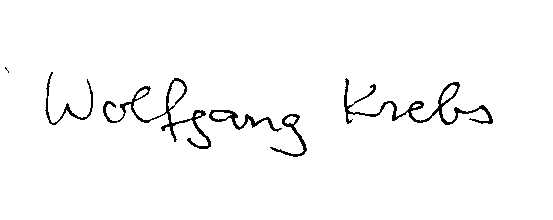 Wolfgang Krebs